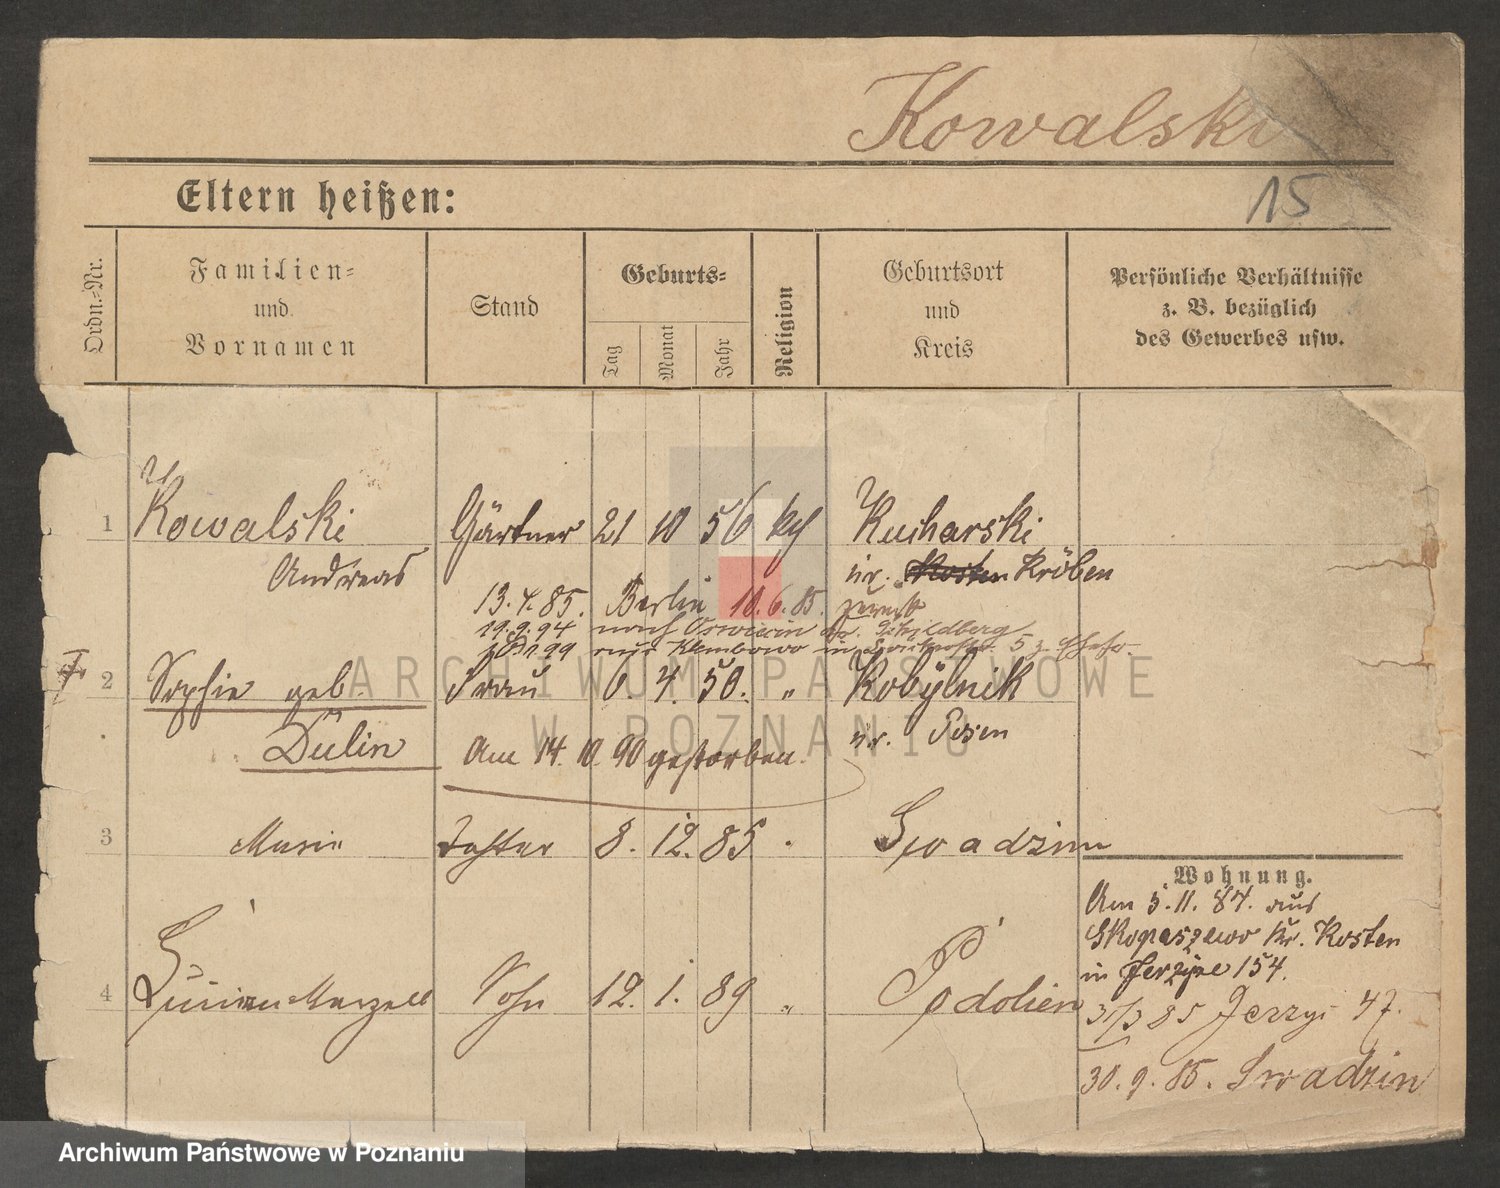 Kowalski
15
Eltern heißen:
Ordn.-Nr.
Familien-
und
Vornamen
Stand
Geburts-
Tag
Monat
Jahr
Religion
Geburtsort
und
Kreis
Persönliche Verhältnisse
z. B. bezüglich
des Gewerbes usw.
1 Kowalski Gärtner 21 10 56 Kucharski
Andreas Kr. Kosten Kröben
13.4.85. Berlin 10.6.85. zurück
19.9.94 nach Schildberg
99 aus
2 Sophie geb. Frau 6. 4. 50. „ Kobylnik
Dulin Kr. Posen
Am 14. 10. 90 gestorben.
3 Marie Tochter 8. 12. 85 Swadzim
4 Sohn 12. 1. 89 „ Podolien
Wohnung.
Am 5. 11. 84. aus
Kr. Kosten
in 154.
31/3 85 47.
30. 9. 85. Swadzin
ARCHIWUM PAŃSTWOWE
W POZNANIU
Archiwum Państwowe w Poznaniu